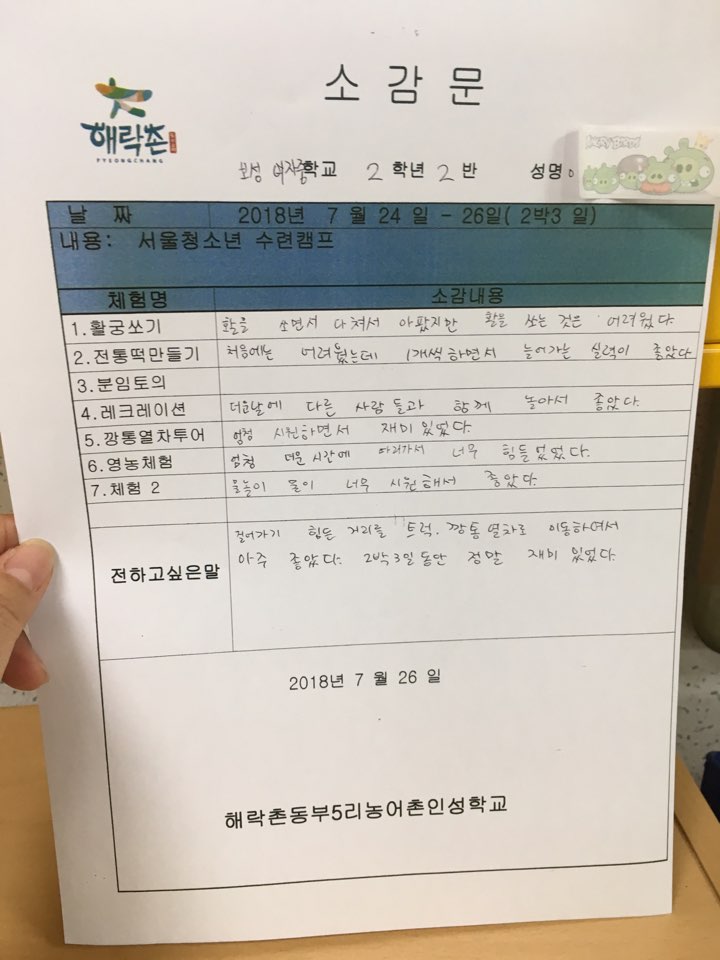 소 감 문
해락촌
PYEONGCHANG
보성 여자중학교 2 학년 2 반 성명
ANGRY BIRDS
날 짜 2018년 7 월 24 일 - 26일( 2박3 일)
내용: 서울청소년 수련캠프
체험명 소감내용
1.활궁쏘기 활을 쏘면서 다쳐서 아팠지만 활을 쏘는 것은 어려웠다.
2.전통떡만들기 처음에는 어려웠는데 1개씩 하면서 늘어가는 실력이 좋았다
3.분임토의
4.레크레이션 더운날에 다른 사람들과 함께 놀아서 좋았다.
5.깡통열차투어 엄청 시원하면서 재미 있었다.
6.영농체험 엄청 더운 시간에 따러가서 너무 힘들었었다.
7.체험 2 물놀이 물이 너무 시원해서 좋았다.
전하고싶은말 걸어가기 힘든 거리를 트럭, 깡통열차로 이동하여서
아주 좋았다. 2박3일동안 정말 재미 있었다.
2018년 7 월 26 일
해락촌동부5리농어촌인성학교